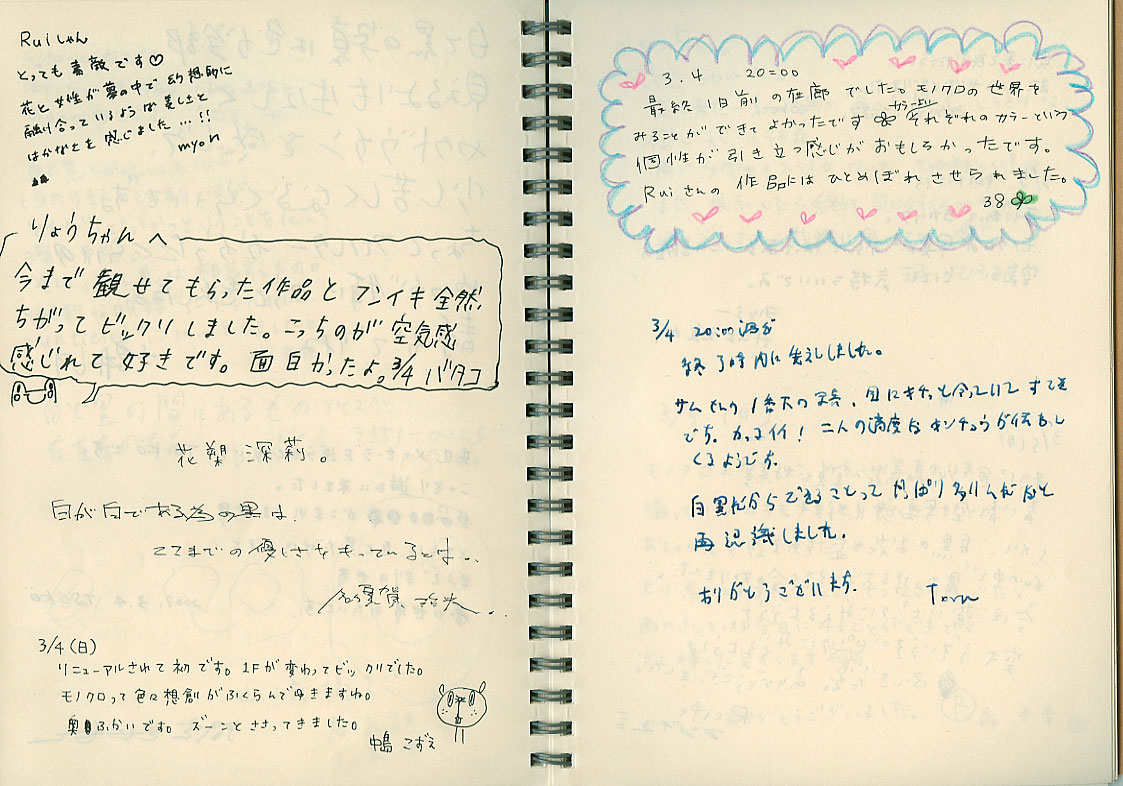 Ruiしゃん
とっても素敵です♡
花と女性が夢の中で幻想的に
融け合っているような美しさと
はかなさを感じました…!!
myon
りょうちゃんへ
今まで観せてもらった作品とフンイキ全然
ちがってビックリしました。こっちのが空気感
感じれて好きです。面白かったよ。3/4 バタコ
花塑 深莉。
白が白である為の黒は、
ここまでの優しさをもっているとは、、
3/4(日)
リニューアルされて初です。1Fが変わってビックリでした。
モノクロって色々想創がふくらんできますね。
奥ふかいです。ズーンとささってきました。
中島 こずえ
3.4 20=00
最終1日前の在廊でした。モノクロの世界を
みることができてよかったです それぞれのカラーという
個性が引き立つ感じがおもしろかったです。
Ruiさんの作品にはひとめぼれさせられました。
38
3/4 20:00過ぎ
終了時間に失礼しました。
サムさんの1番大の写真、
です。カッコイイ!二人の適度なキンチョウが伝わって
くるようです。
白黒だからできることってやっぱりあるんだなと
再認識しました。
ありがとうございました。 Toru